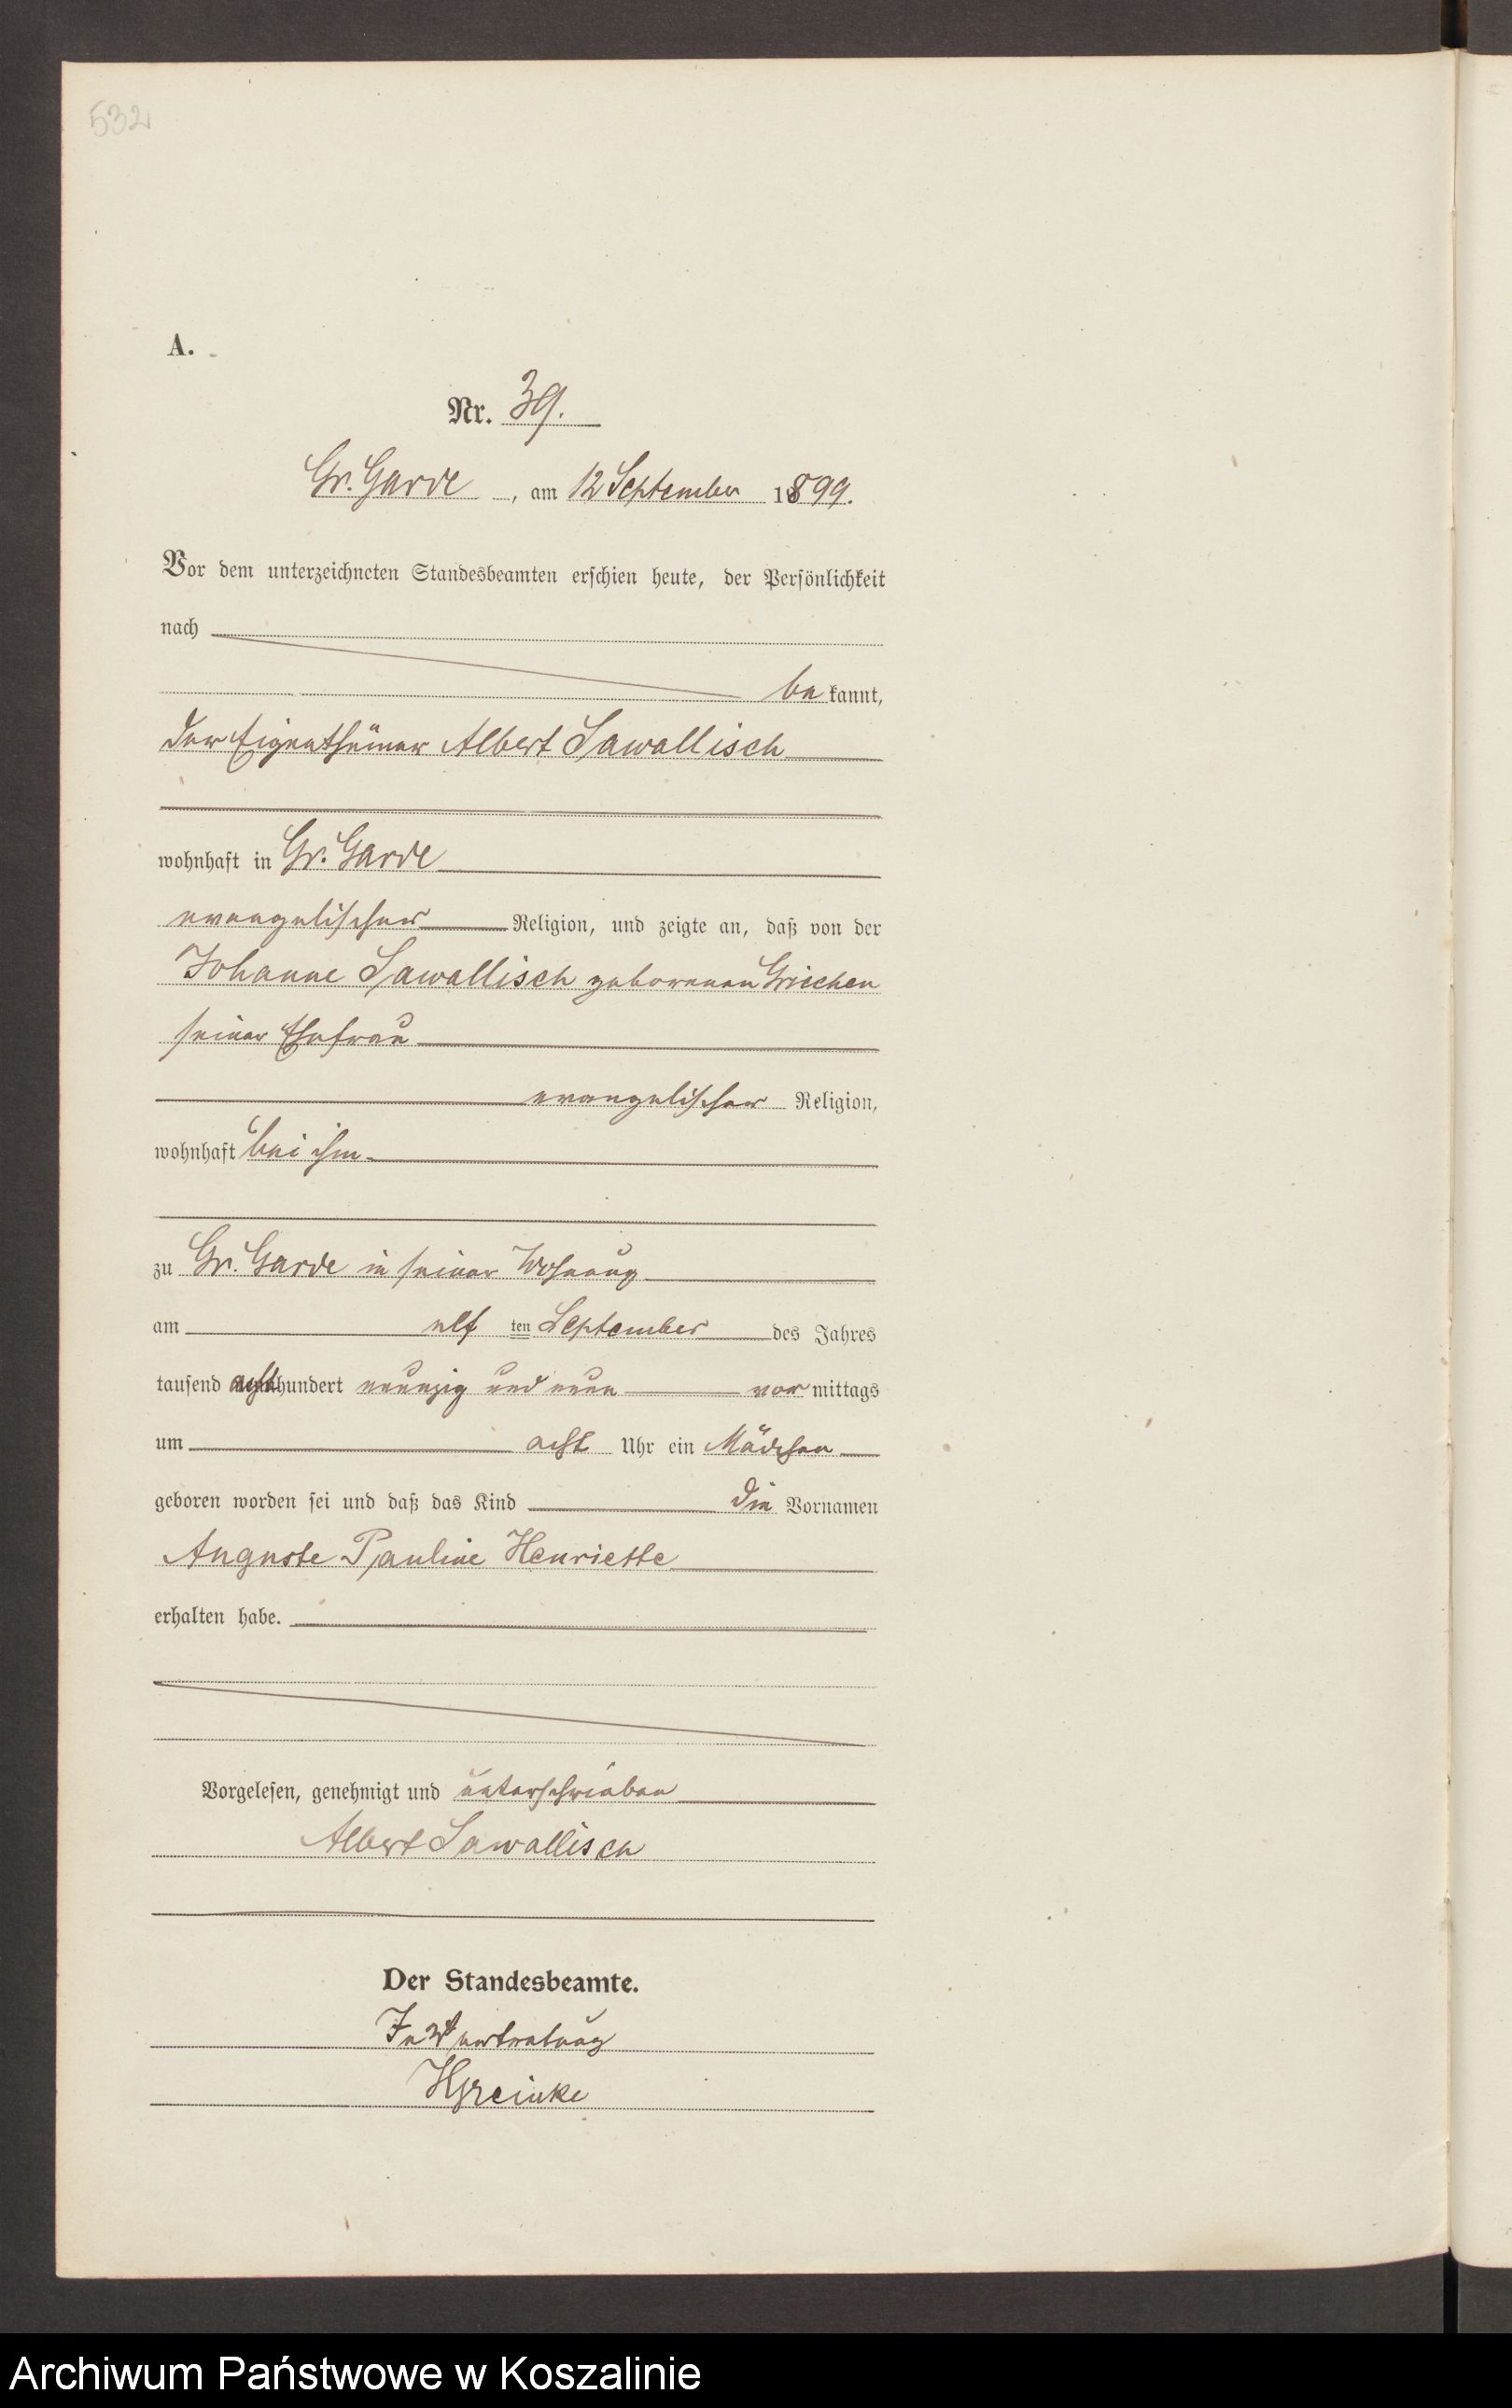 532
A.
Nr. 39.
Gr. Garde, am 12 September 1899.
Vor dem unterzeichneten Standesbeamten erschien heute, der Persönlichkeit
nach
be kannt,
der Eigenthümer Albert Sawallisch
wohnhaft in Gr. Garde
evangelischer Religion, und zeigte an, daß von der
Johanne Sawallisch geborenen Griechen
seiner Ehefrau
evangelischer Religion,
wohnhaft bei ihm
zu Gr. Garde in seiner Wohnung
am elf ten September des Jahres
tausend acht hundert neunzig und neun vor mittags
um acht Uhr ein Mädchen
geboren worden sei und daß das Kind die Vornamen
Auguste Pauline Henriette
erhalten habe.
Vorgelesen, genehmigt und unterschrieben
Albert Sawallisch
Der Standesbeamte.
In Vertretung
Archiwum Państwowe w Koszalinie